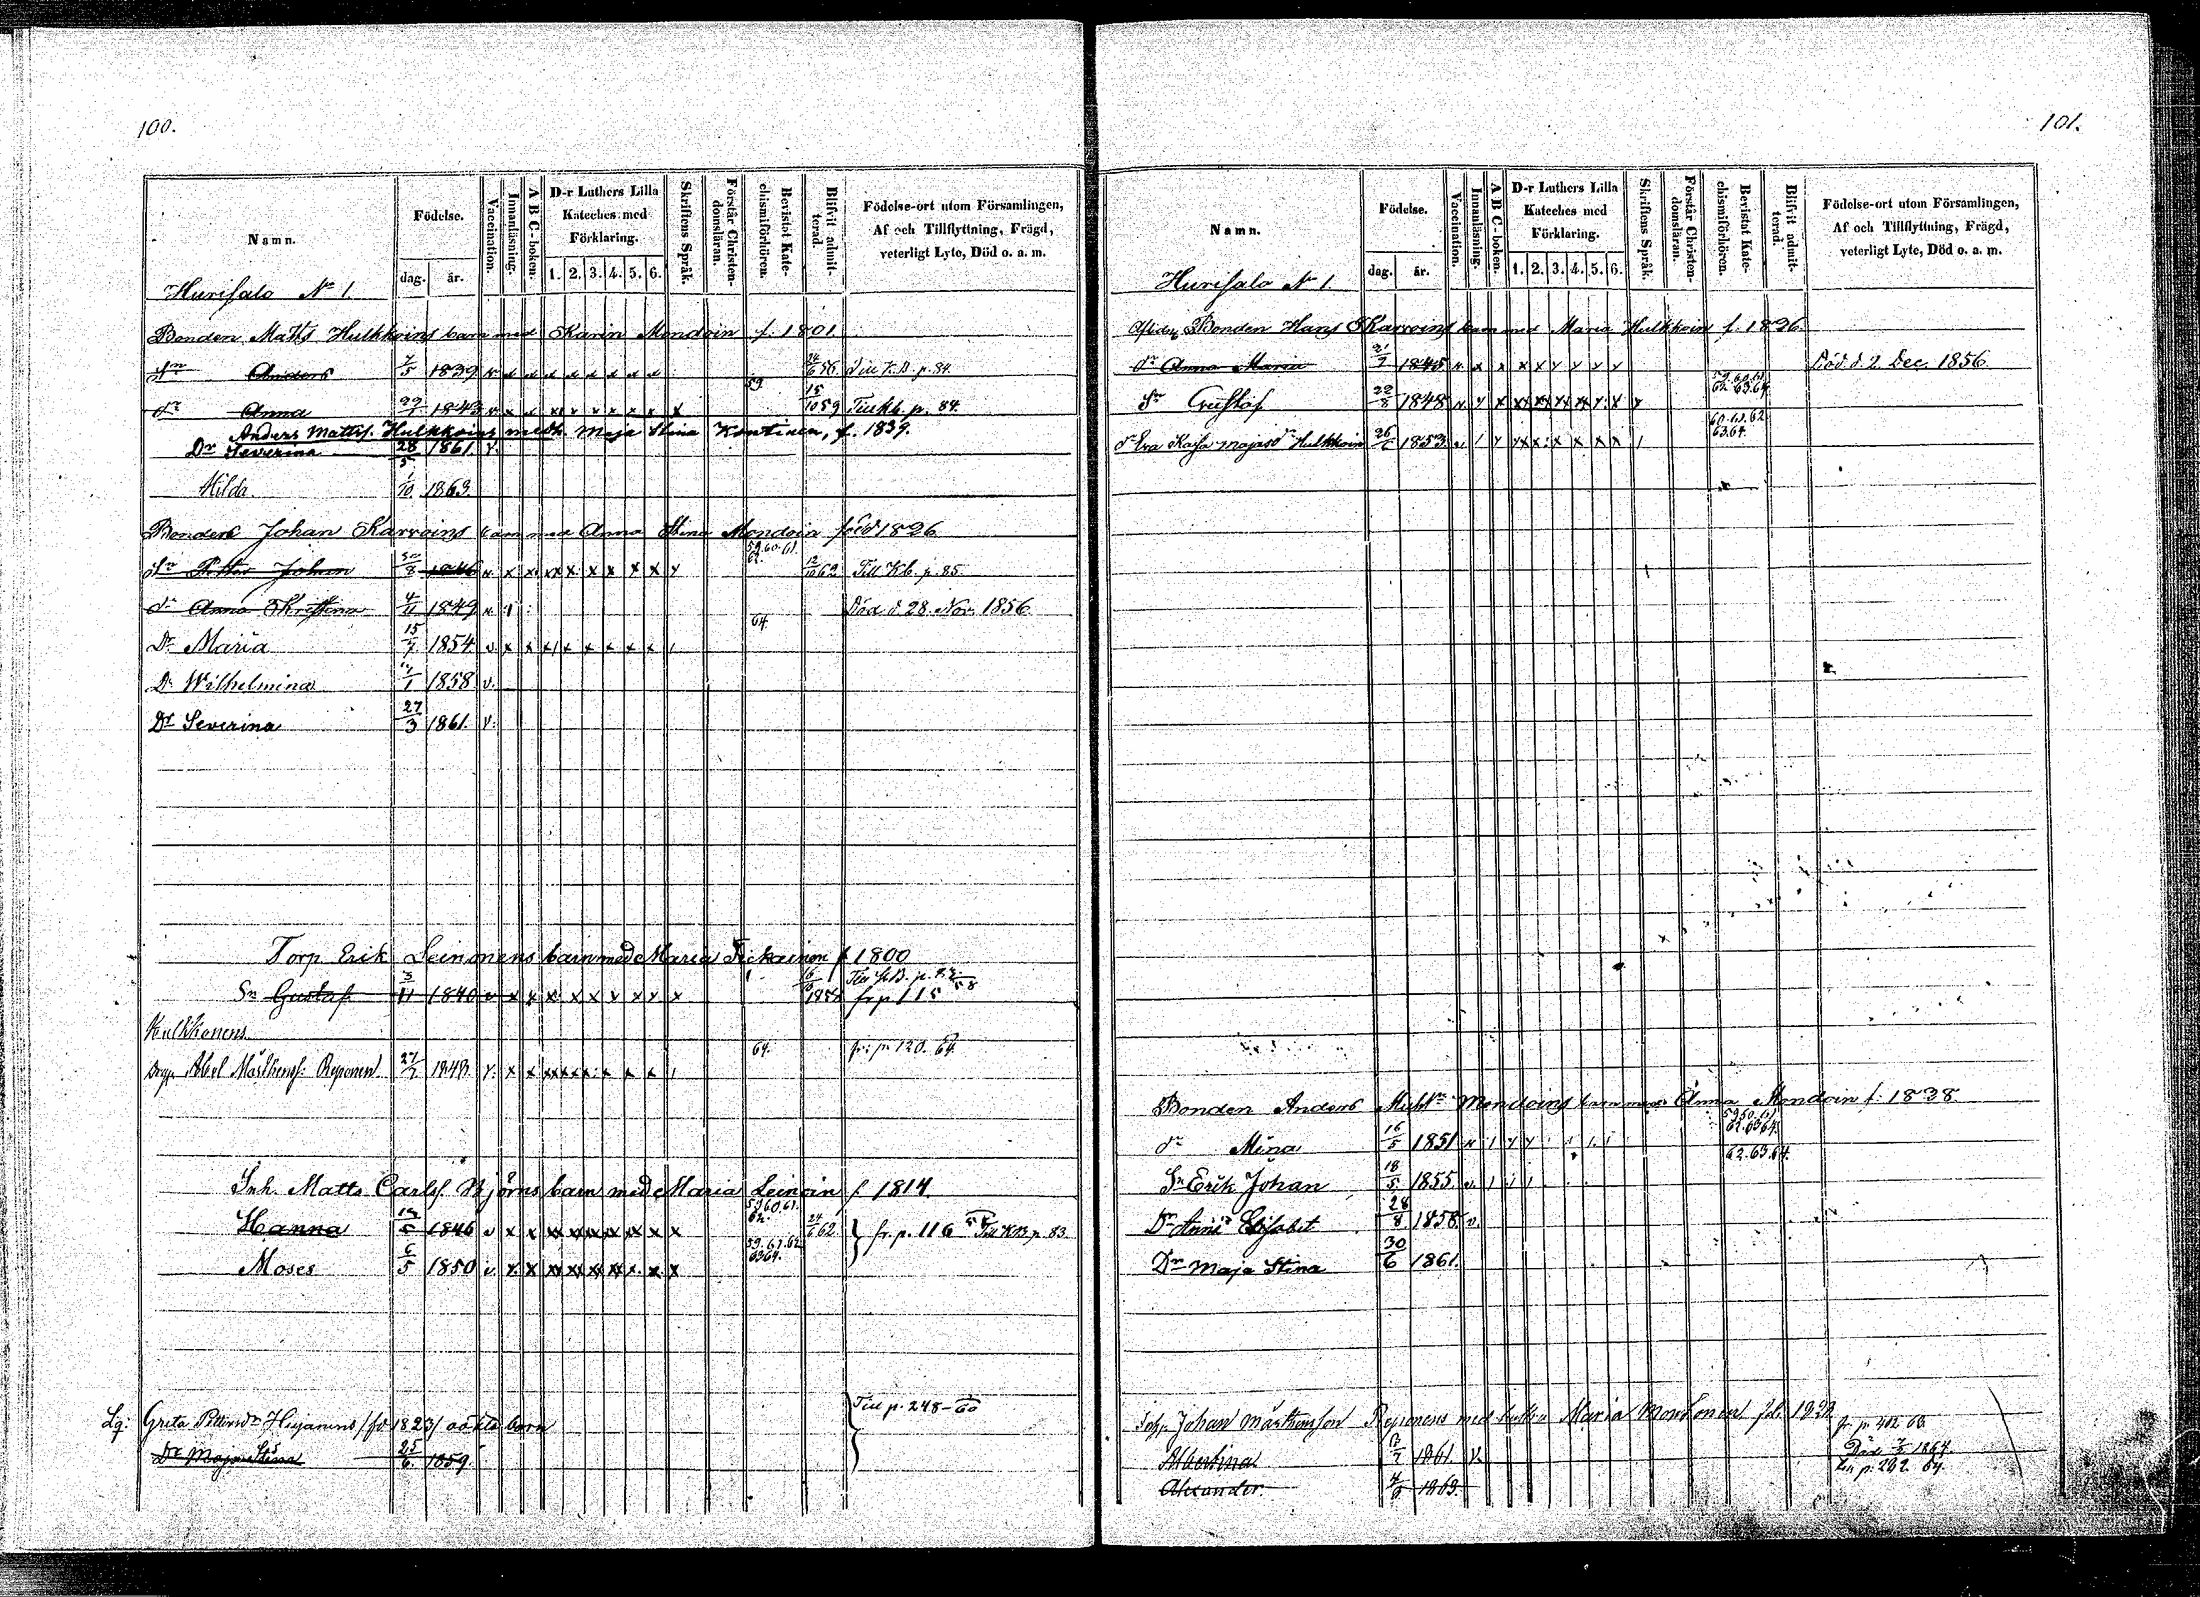 100.
Namn. Födelse. dag. år. Vaccination. Innanläsning. A B C-boken. D-r Luthers Lilla Kateches med Förklaring. 1. 2. 3. 4. 5. 6. Skriftens Språk. Förstår Christendomsläran. Bevistat Katechismiförhören. Blifvit admitterad. Födelse-ort utom Församlingen, Af och Tillflyttning, Frägd, veterligt Lyte, Död o. a. m.
Hurisalo No 1.
Bonden Matts Hulkkoins barn med Karin Mondoin f. 1801.
Sn Anders 7/5 1839 24/6 56 Till K.B. p. 84.
dr Anna 1843 59 15/10 59 Till kb. p. 84.
Anders Mattss. Hulkkoins med h. Maja Stina Kontinen, f. 1839.
Dr Severina 28/5 1861 v.
Hilda 1/10 1863.
Bonden Johan Karvoins barn med Anna Stina Mondoin född 1826
Sn Petter Johan 30/8 1846 59.60.61. 62. 12/10 62 Till Kb. p. 85.
dr Anna Kristina 4/11 1849 Död d. 28. Nov. 1856.
Dr Maria 15/7 1854 v. 64.
Dr Wilhelmina 1858 v.
Dr Severina 27/3 1861. v.
Torp. Erik Leinonens barn med Maria Tickainen f 1800
Sn Gustaf 3/11 1840 v fr p 115
Hulkkonens
Abel Mårthenss. Reponen 1843. v. 64. fr: p. 120. 64.
Inh. Matts Carlss. Björns barn med Maria Leinoin f 1814.
Hanna 1846 v 59.60.61. 62. 24/6 62. fr. p. 116 Till KB p. 83.
Moses 6/5 1850 v. 63.64.
Lg: Greta Pettersdr Hujanens /fd 1823/ oäkta barn Till p. 248-60
Dr Maja Stina 25/6 1859
101.
Namn. Födelse. dag. år. Vaccination. Innanläsning. A B C-boken. D-r Luthers Lilla Kateches med Förklaring. 1. 2. 3. 4. 5. 6. Skriftens Språk. Förstår Christendomsläran. Bevistat Katechismiförhören. Blifvit admitterad. Födelse-ort utom Församlingen, Af och Tillflyttning, Frägd, veterligt Lyte, Död o. a. m.
Hurisalo No 1.
Afledne Bonden Hans Karvoins barn med Maria Hulkkoin f. 1826.
dr Anna Maria 1845 Död d. 2 Dec. 1856.
Sn Gustaf 22/8 1848 59.60.61. 62.63.64.
dr Eva Kajsa Majasdr Hulkkoin 1853 60.61.62. 63.64.
Bonden Anders Mondoins barn med Anna Mondoin f. 1838
dr Mina 16/5 1851 59.60.61. 62.63.64.
Sn Erik Johan 18/5 1855 62.63.64.
Dr Anna Elisabet 28/8 1858. v.
Dr Maja Stina 30/6 1861.
Johan Mårthensson Reponens med hustru Maria Mondonen
Albertina 1861. v.
Alexander 1863.